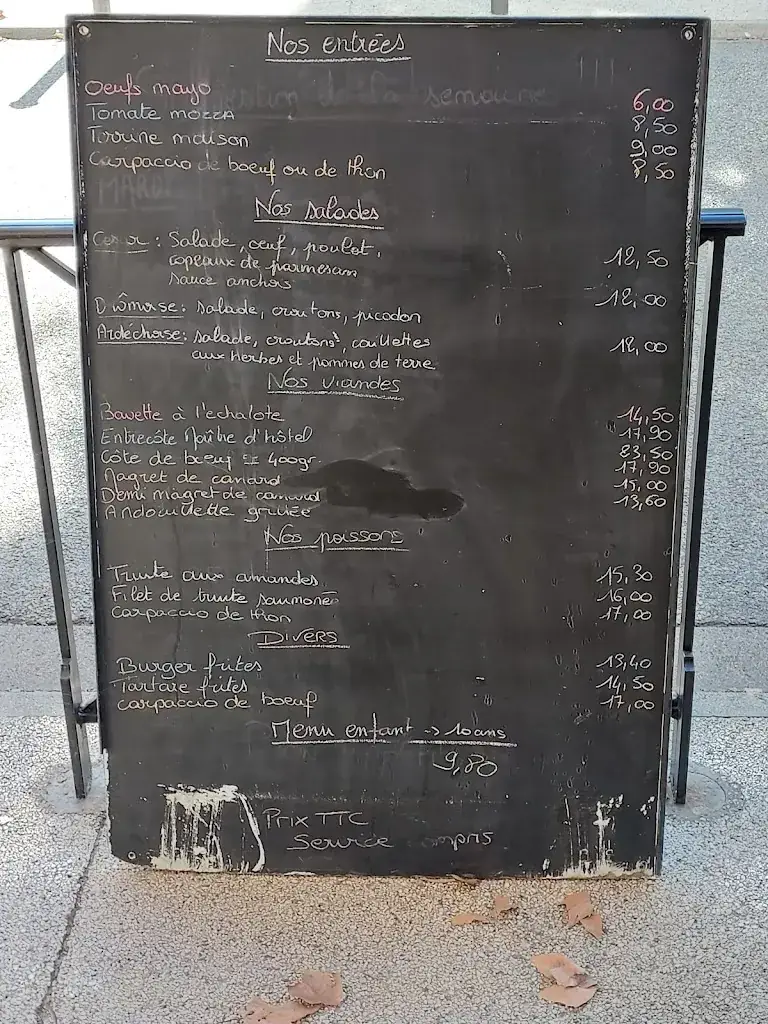 Nos entrées
Oeufs mayo 6,00
Tomate mozza 8,50
Terrine maison 9,00
Carpaccio de boeuf ou de thon 8,50
Nos salades
Cesar : Salade, oeuf, poulet,
copeaux de parmesan 12,50
sauce anchois
Drômoise: salade, croutons, picodon 12,00
Ardéchoise: salade, croutons, caillettes 12,00
aux herbes et pommes de terre
Nos viandes
Bavette à l'echalote 14,50
Entrecôte Maître d'hôtel 17,90
Côte de boeuf 400gr 23,50
Magret de canard 17,90
Demi magret de canard 15,00
Andouillette grillée 13,60
Nos poissons
Truite aux amandes 15,30
Filet de truite saumoné 16,00
Carpaccio de thon 17,00
Divers
Burger frites 13,40
Tartare frites 14,50
carpaccio de boeuf 17,00
Menu enfant -> 10 ans
9,80
Prix TTC
Service compris